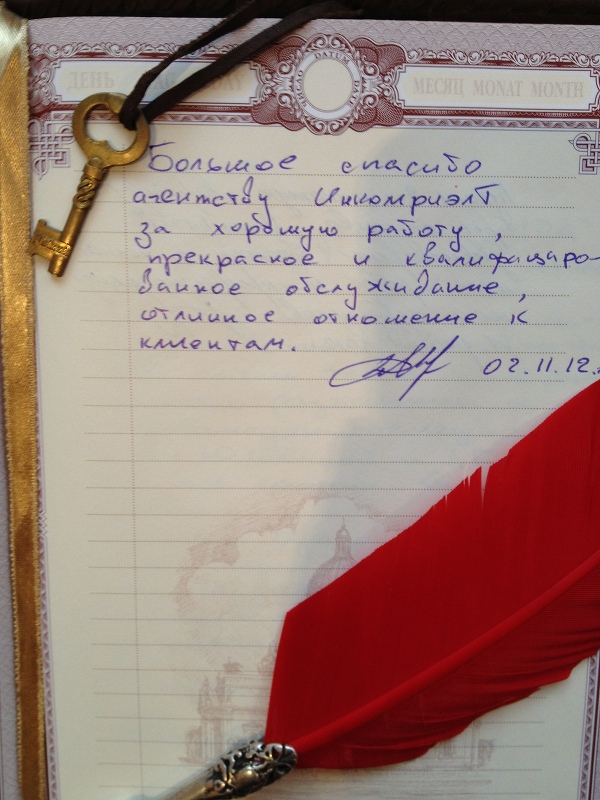 ДЕНЬ TAG DAY
DATUM
МЕСЯЦ MONAT MONTH
Большое спасибо
агентству Инкомриэлт
за хорошую работу,
прекрасное и квалифициро-
ванное обслуживание,
отличное отношение к
клиентам.
02.11.12.